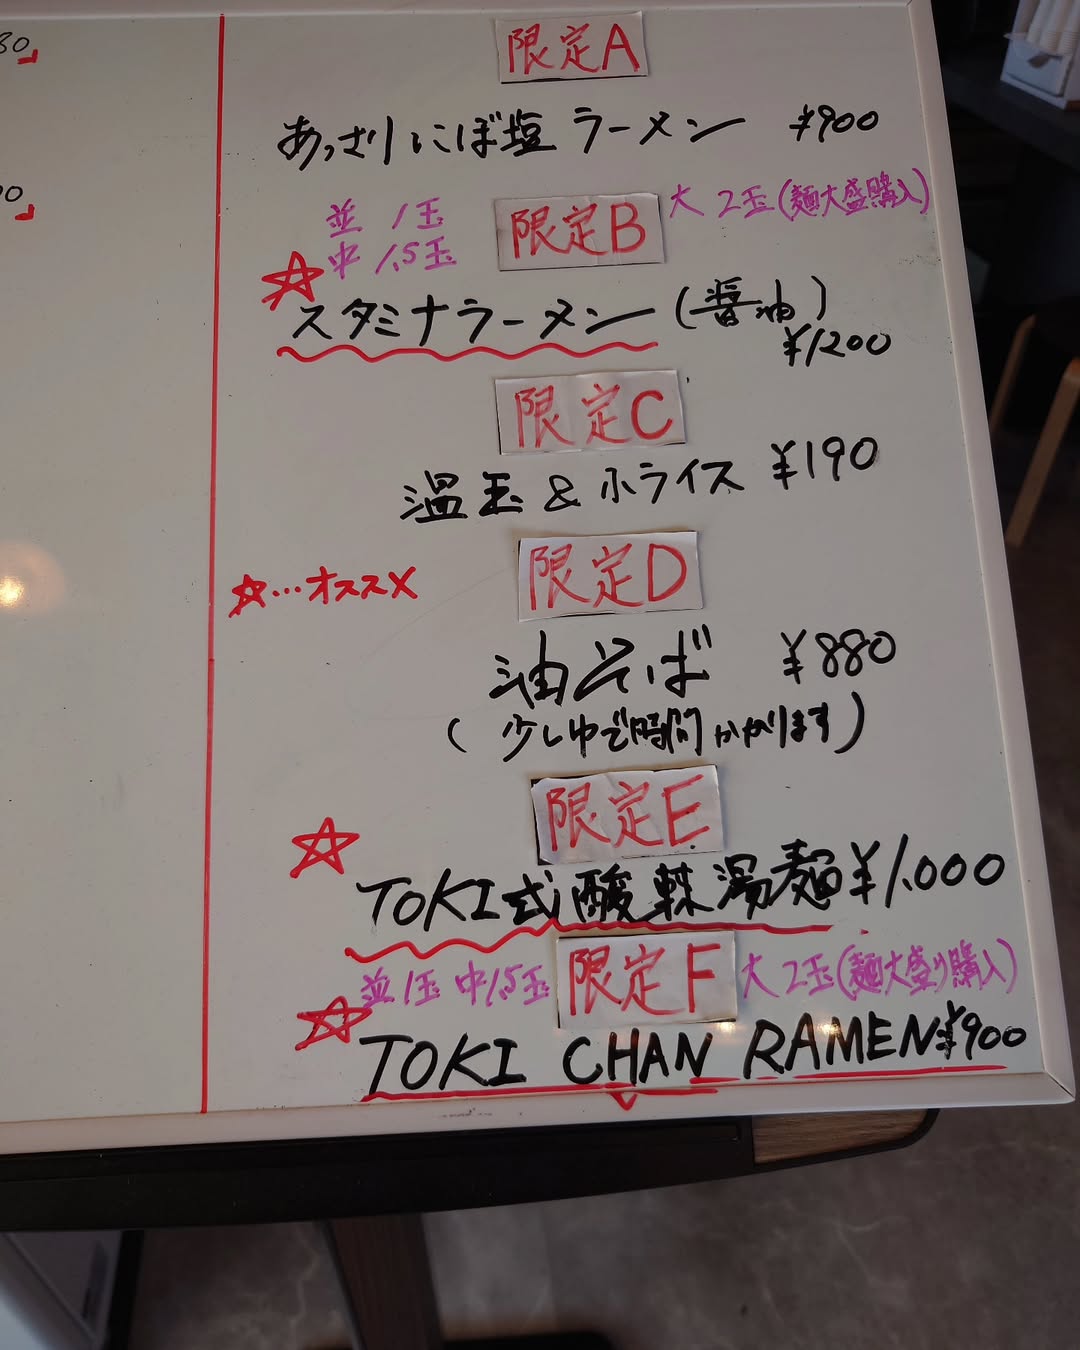 限定A
あっさりにぼ塩ラーメン ¥900
並 1玉
中 1.5玉
限定B
大 2玉(麺大盛購入)
☆スタミナラーメン(醤油)
¥1200
限定C
温玉&小ライス ¥190
限定D
☆…オススメ
油そば ¥880
(少しゆで時間かかります)
限定E
☆TOKI式酸辣湯麺¥1,000
並1玉 中1.5玉 限定F 大 2玉(麺大盛り購入)
☆TOKI CHAN RAMEN¥900